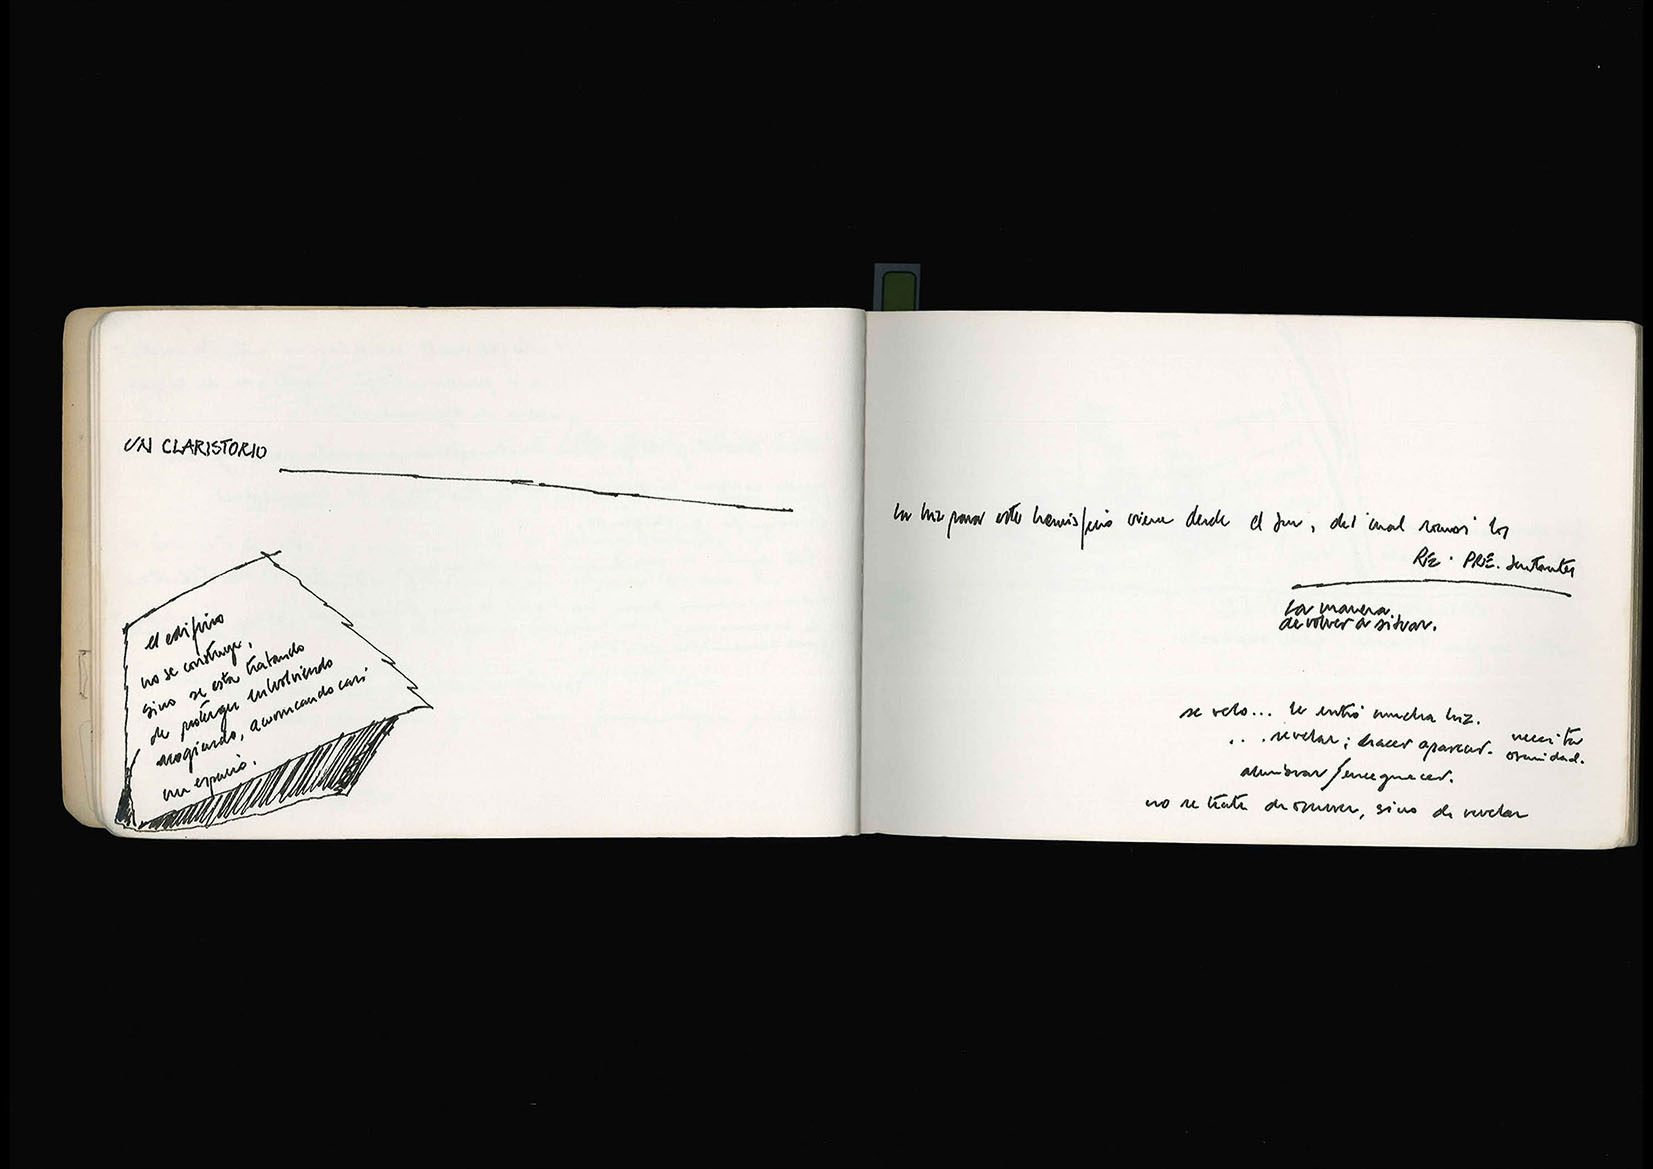 UN CLARISTORIO
el edificio
no se construye,
sino se esta tratando
de proteger envolviendo
acogiendo, acomodando casi
un espacio.
la luz para este hemisferio viene desde el sur, del cual somos los
RE. PRE. sentantes
la manera
de volver a situar.
se velo... le entró mucha luz.
... revelar; hacer aparecer.
necesita
oscuridad.
alumbrar / enceguecer.
no se trata de , sino de revelar